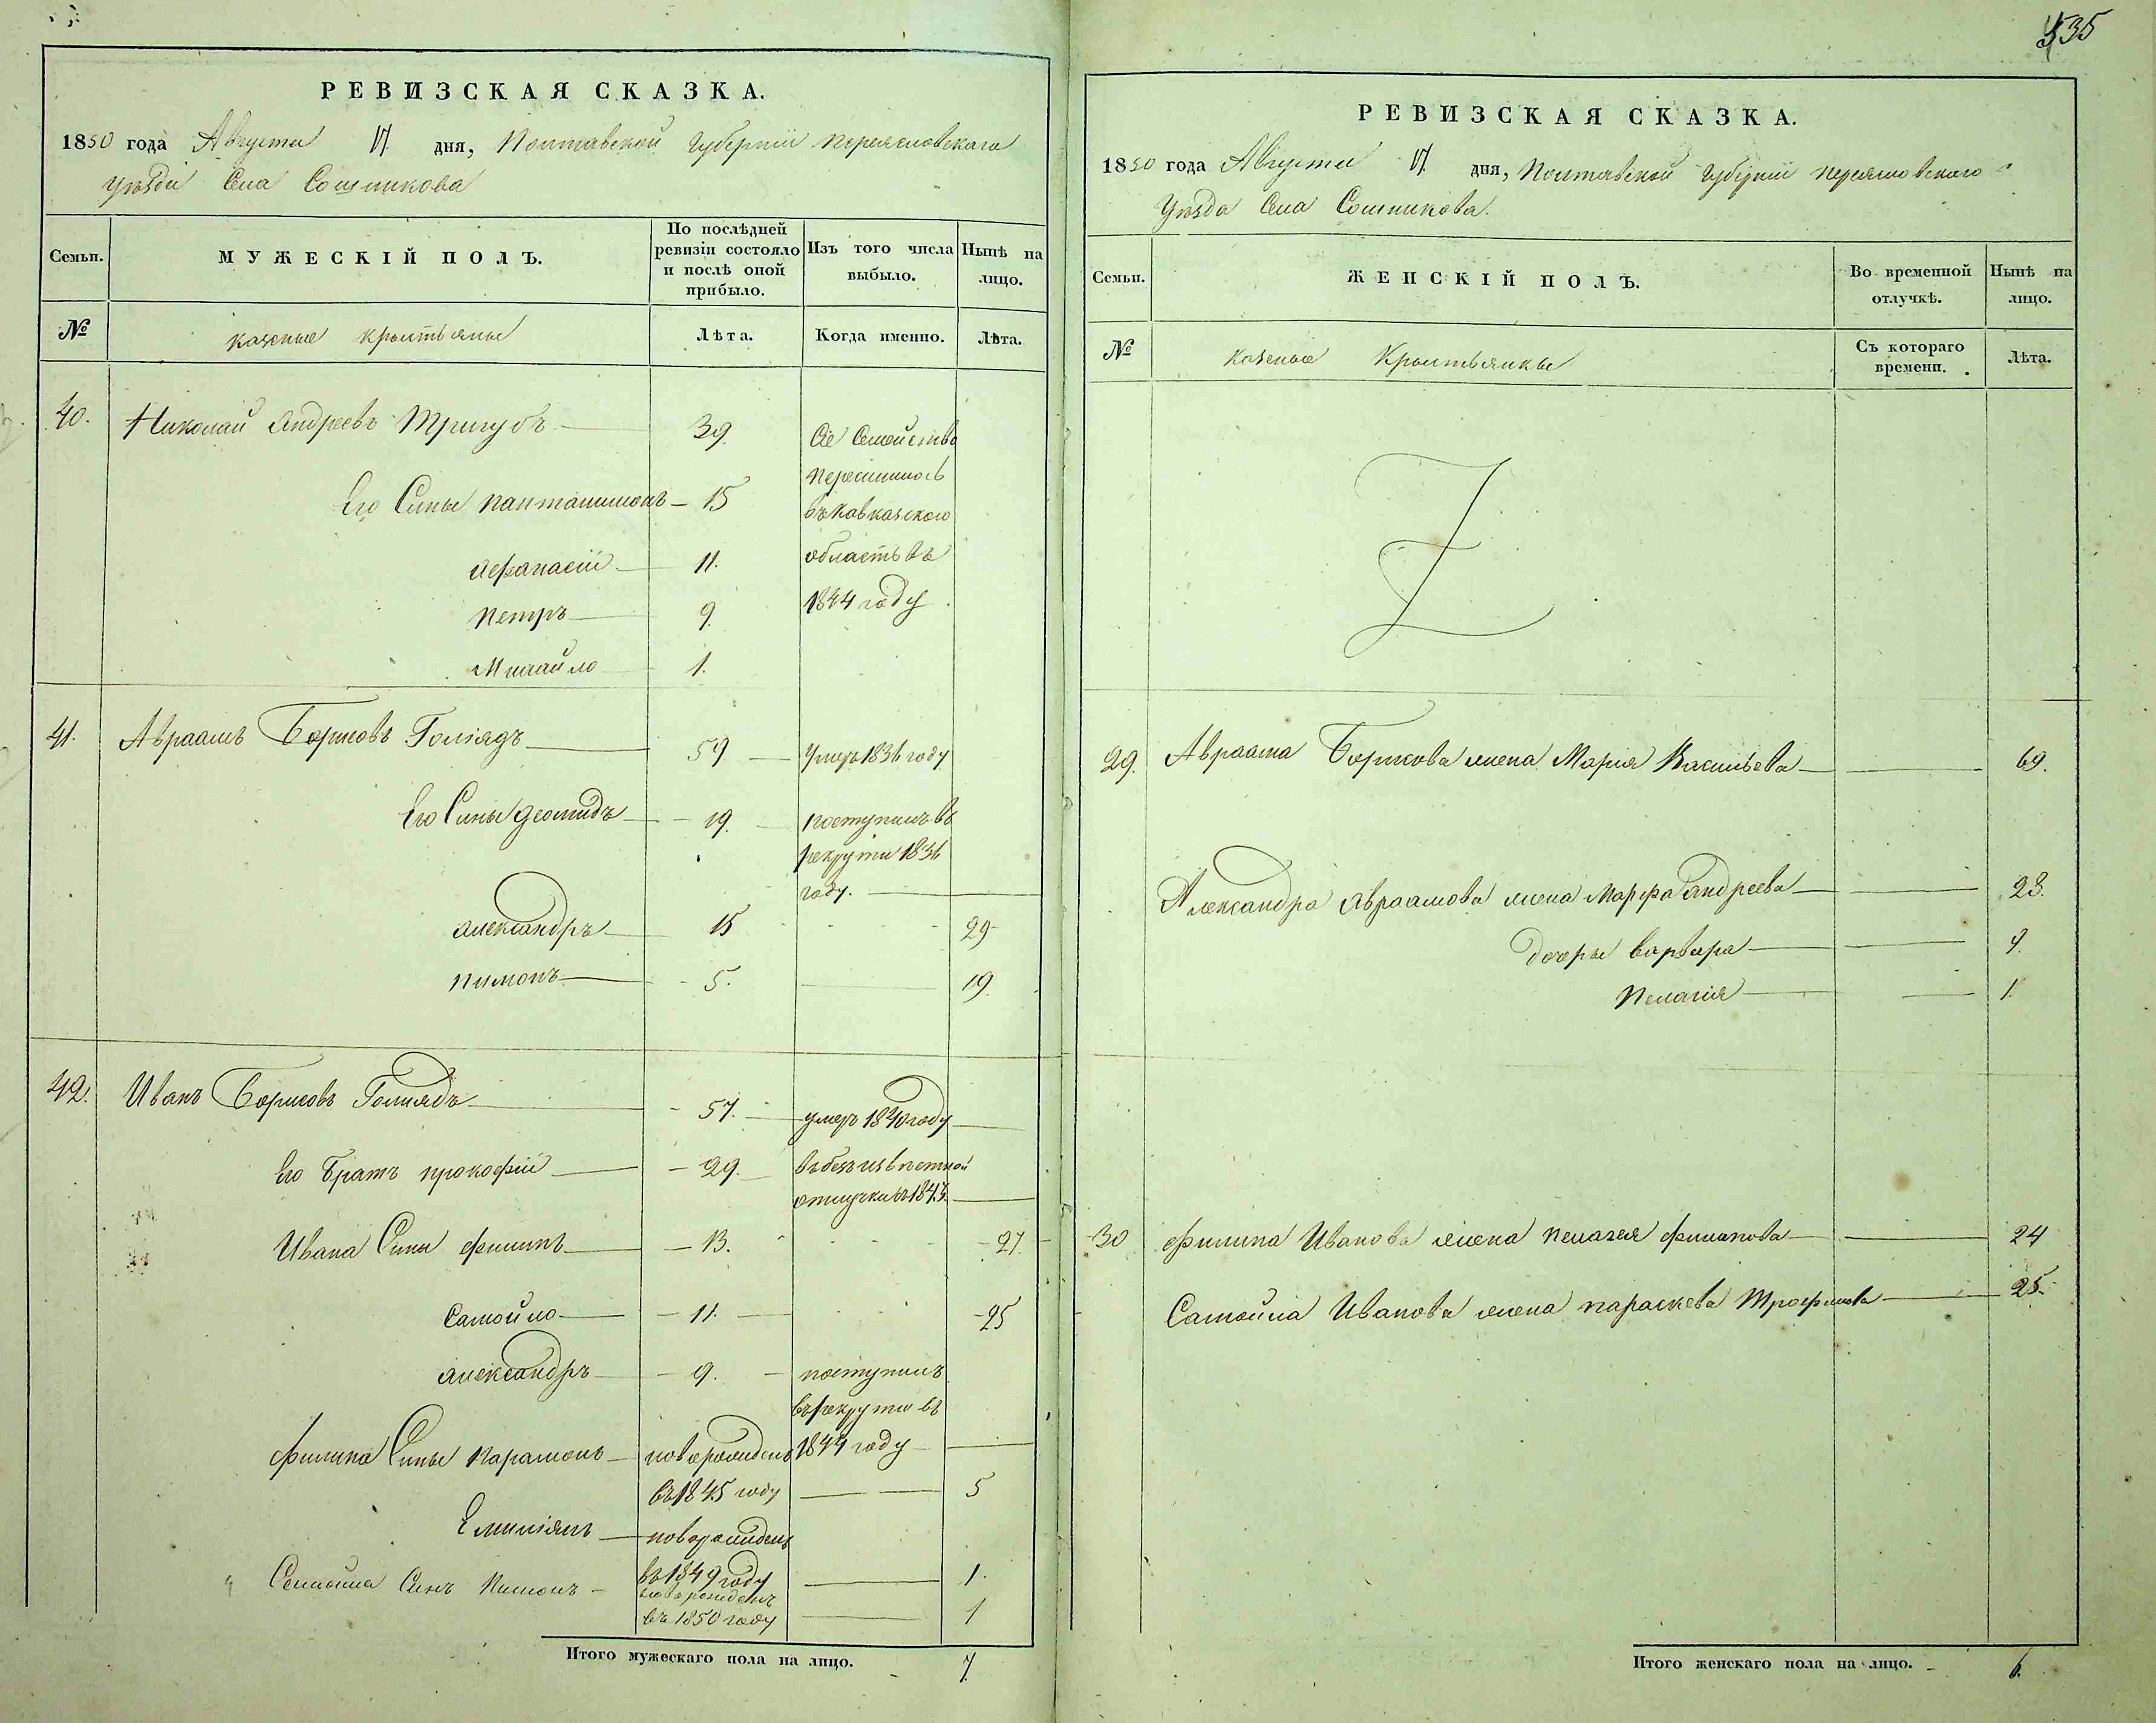 535
РЕВИЗСКАЯ СКАЗКА.
1850 года Августа 17 дня, Полтавской Губерніи Переясловскаго
Уѣзда Села Сошникова
Семьи.
МУЖЕСКІЙ ПОЛЪ.
По послѣдней ревизіи состояло и послѣ оной прибыло.
Изъ того числа выбыло.
Нынѣ на лицо.
№
казеные крестьяне
Лѣта.
Когда именно.
Лѣта.
40. Николай Андреевъ Тригубъ 39.
Сіе Семейство
переселилось
въ Кавказскою
область въ
1844 году
Его Сины Пантелимонъ 15
Афанасій 11.
Петръ 9.
Михайло 1.
41. Авраамъ Борисовъ Голіядъ 59 Умеръ 1836 году
Его Сины Деомидъ 19. поступилъ въ
рекруты 1836
году.
Александръ 15 29
Пимонъ 5. 19.
42. Иванъ Борисовъ Голиядъ 57. умеръ 1840 году
Его Братъ Прокофій 29. въ безизвестной
отлучки въ 1843.
Ивана Сины Филипъ 13. 27.
Самойло 11. 25
Александръ 9. поступилъ
въ рекруты въ
1844 году
Филипа Сины Парамонъ новорожденъ
въ 1845 году 5
Емиліянъ новорожденъ
въ 1849 году 1.
Самойла Синъ Пимонъ новорожденъ
въ 1850 году 1
Итого мужескаго пола на лицо. 7.
РЕВИЗСКАЯ СКАЗКА.
1850 года Августа 17 дня, Полтавской Губерніи Переясловского
Уѣзда Села Сошникова.
Семьи.
ЖЕНСКІЙ ПОЛЪ.
Во временной отлучкѣ.
Нынѣ на лицо.
№
казеные Крестьянкы
Съ котораго времени.
Лѣта.
29. Авраама Борисова жена Марія Васильева 69.
Александра Авраамова жена Марфа Андреева 28.
дочеры Варвара 9.
Пелагія 1.
30 Филипа Иванова жена Пелагея Филипова 24
Самойла Иванова жена Параскева Трофимова 25.
Итого женскаго пола на лицо. 6.